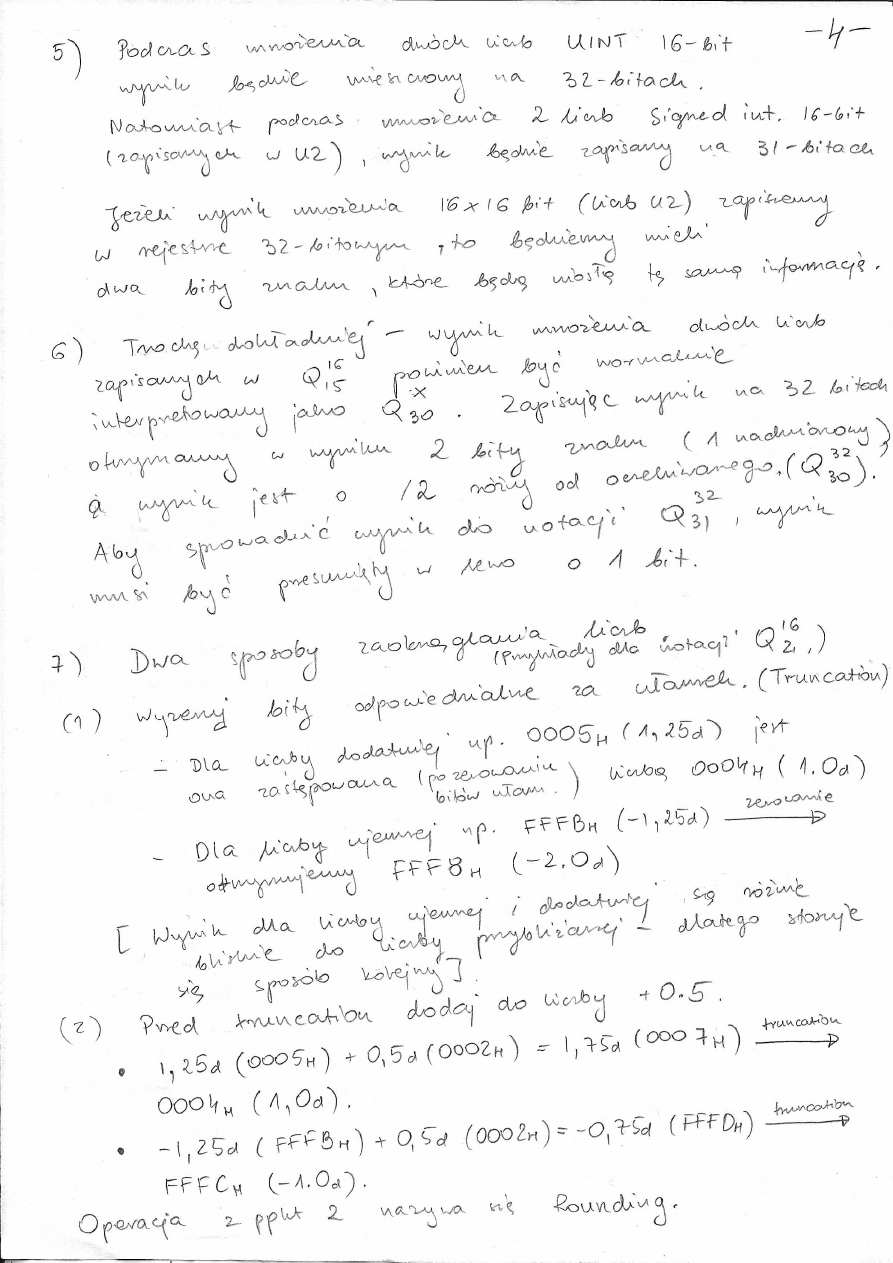 -4-
5) Podczas mnożenia dwóch liczb UINT 16-bit
wynik będzie mieszczony na 32-bitach.
Natomiast podczas mnożenia 2 liczb Signed int. 16-bit
(zapisanych w U2), wynik będzie zapisany na 31-bitach
Jeżeli wynik mnożenia 16x16 bit (liczb U2) zapiszemy
w rejestrze 32-bitowym, to będziemy mieli
dwa bity znaku, które będą niosły tę samą informację.
6) Trochę dokładniej - wynik mnożenia dwóch liczb
zapisanych w Q¹⁶₁₅ powinien być normalnie
interpretowany jako Qˣ₃₀. Zapisując wynik na 32 bitach
otrzymamy w wyniku 2 bity znaku (1 nadmiarowy)
a wynik jest o /2 różny od oczekiwanego. (Q³²₃₀).
Aby sprowadzić wynik do notacji Q³²₃₁, wynik
musi być przesunięty w lewo o 1 bit.
7) Dwa sposoby zaokrąglania liczb
(Przykłady dla notacji Q¹⁶₂,)
(1) Wyzeruj bity odpowiedzialne za ułamek. (Truncation)
- Dla liczby dodatniej np. 0005H (1,25d) jest
ona zastępowana (po zerowaniu bitów ułam.) liczbą 0004H (1.0d)
- Dla liczby ujemnej np. FFFBH (-1,25d) zerowanie →
otrzymujemy FFF8H (-2.0d)
[Wynik dla liczby ujemnej i dodatniej się różnie
bliskie do liczby przybliżanej - dlatego stosuje
się sposób kolejny]
(2) Przed truncation dodaj do liczby +0.5.
• 1,25d (0005H) + 0,5d (0002H) = 1,75d (0007H) truncation →
0004H (1,0d).
• -1,25d (FFFBH) + 0,5d (0002H) = -0,75d (FFFDH) truncation →
FFFCH (-1.0d).
Operacja z ppkt 2 nazywa się Rounding.